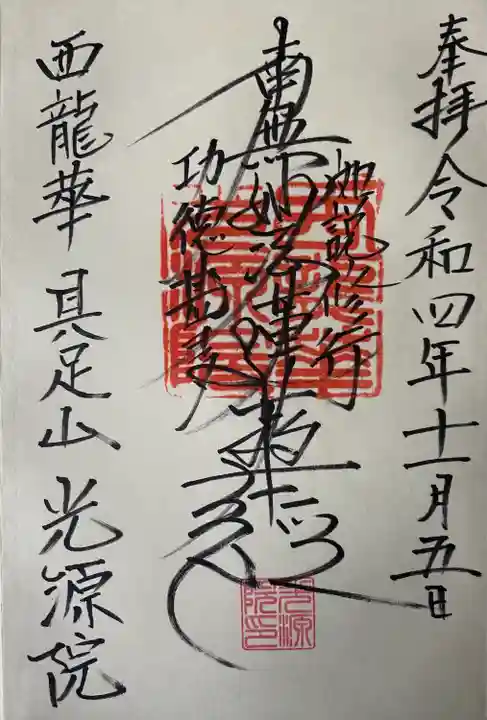 奉拝 令和四年十一月五日
如説修行
南無妙法蓮華経
功徳甚多
西龍華 具足山 光源院
光源院印